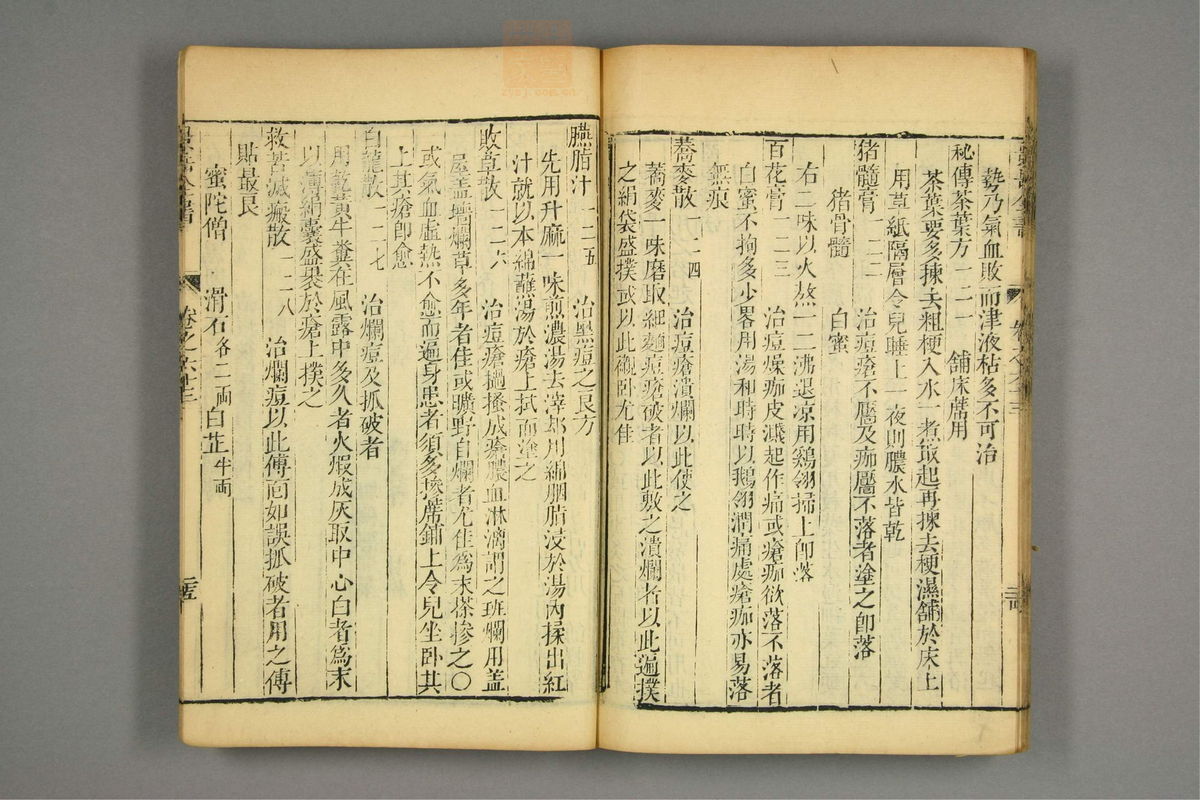 勢乃氣血敗而津液枯多不可治
秘傳茶葉方一二一 舖床蓆用
茶葉要多揀去粗梗入水一煮取起再揀去梗濕舖於床上
用草紙隔層令兒睡上一夜則膿水皆乾
猪髓膏一二二 治痘瘡不靨及痂靨不落者塗之即落
猪骨髓 白蜜
右二味以火熬一二沸退凉用鷄翎掃上即落
百花膏一二三 治痘燥痂皮濺起作痛或瘡痂欲落不落者
白蜜不拘多少畧用湯和時時以鵝翎潤痛處瘡痂亦易落
無痕
蕎麥散一二四 治痘瘡潰爛以此使之
蕎麥一味磨取細麵痘瘡破者以此敷之潰爛者以此遍撲
之絹袋盛撲或以此襯卧尤佳
臙脂汁一二五 治黑痘之良方
先用升麻一味煎濃湯去滓却用綿胭脂浸於湯內揉出紅
汁就以本綿蘸湯於瘡上拭而塗之
敗草散一二六 治痘瘡擦搔成瘡膿血淋漓謂之班爛用盖
屋盖墻爛草多年者佳或曠野自爛者尤佳為末搽摻之〇
或氣血虛熱不愈而遍身患者須多摻蓆鋪上令兒坐卧其
上其瘡即愈
白龍散一二七 治爛痘及抓破者
用乾黃牛糞在風露中多久者火煅成灰取中心白者為末
以薄絹囊盛裹於瘡上撲之
救苦滅瘢散一二八 治爛痘以此傅面如誤抓破者用之傅
貼最良
蜜陀僧 滑石各二兩 白芷半兩